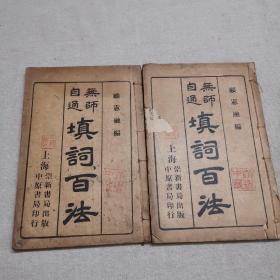 無師
自通
填詞百法
顧憲融編
上海
崇新書局出版
中原書局印行
無師
自通
填詞百法
顧憲融編
上海
崇新書局出版
中原書局印行